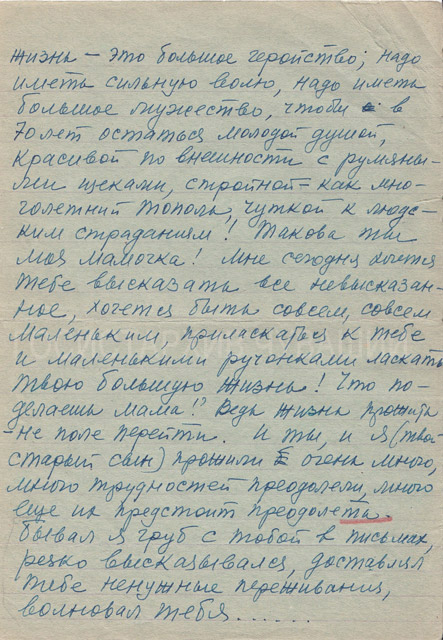 жизнь – это большое геройство; надо
иметь сильную волю, надо иметь
большое мужество, чтобы в
70 лет остаться молодой душой,
красивой по внешности с румяны-
ми щеками, стройной – как мно-
голетний тополь, чуткой к людс-
ким страданиям! Такова ты
моя мамочка! Мне сегодня хочется
тебе высказать все невысказан-
ное, хочется быть совсем, совсем
маленьким, приласкаться к тебе
и маленькими ручонками ласкать
твою большую жизнь! Что по-
делаешь мама!? Ведь жизнь прожить
– не поле перейти. И ты, и я (твой
старый сын) прожили очень много,
много трудностей преодолели, много
еще их предстоит преодолеть.
Бывал я груб с тобой в письмах,
резко высказывался, доставлял
тебе ненужные переживания,
волновал тебя......